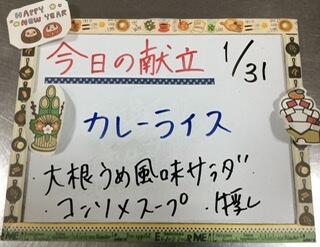 HAPPY NEW YEAR
今日の献立
1/31
カレーライス
・大根うめ風味サラダ
・コンソメスープ